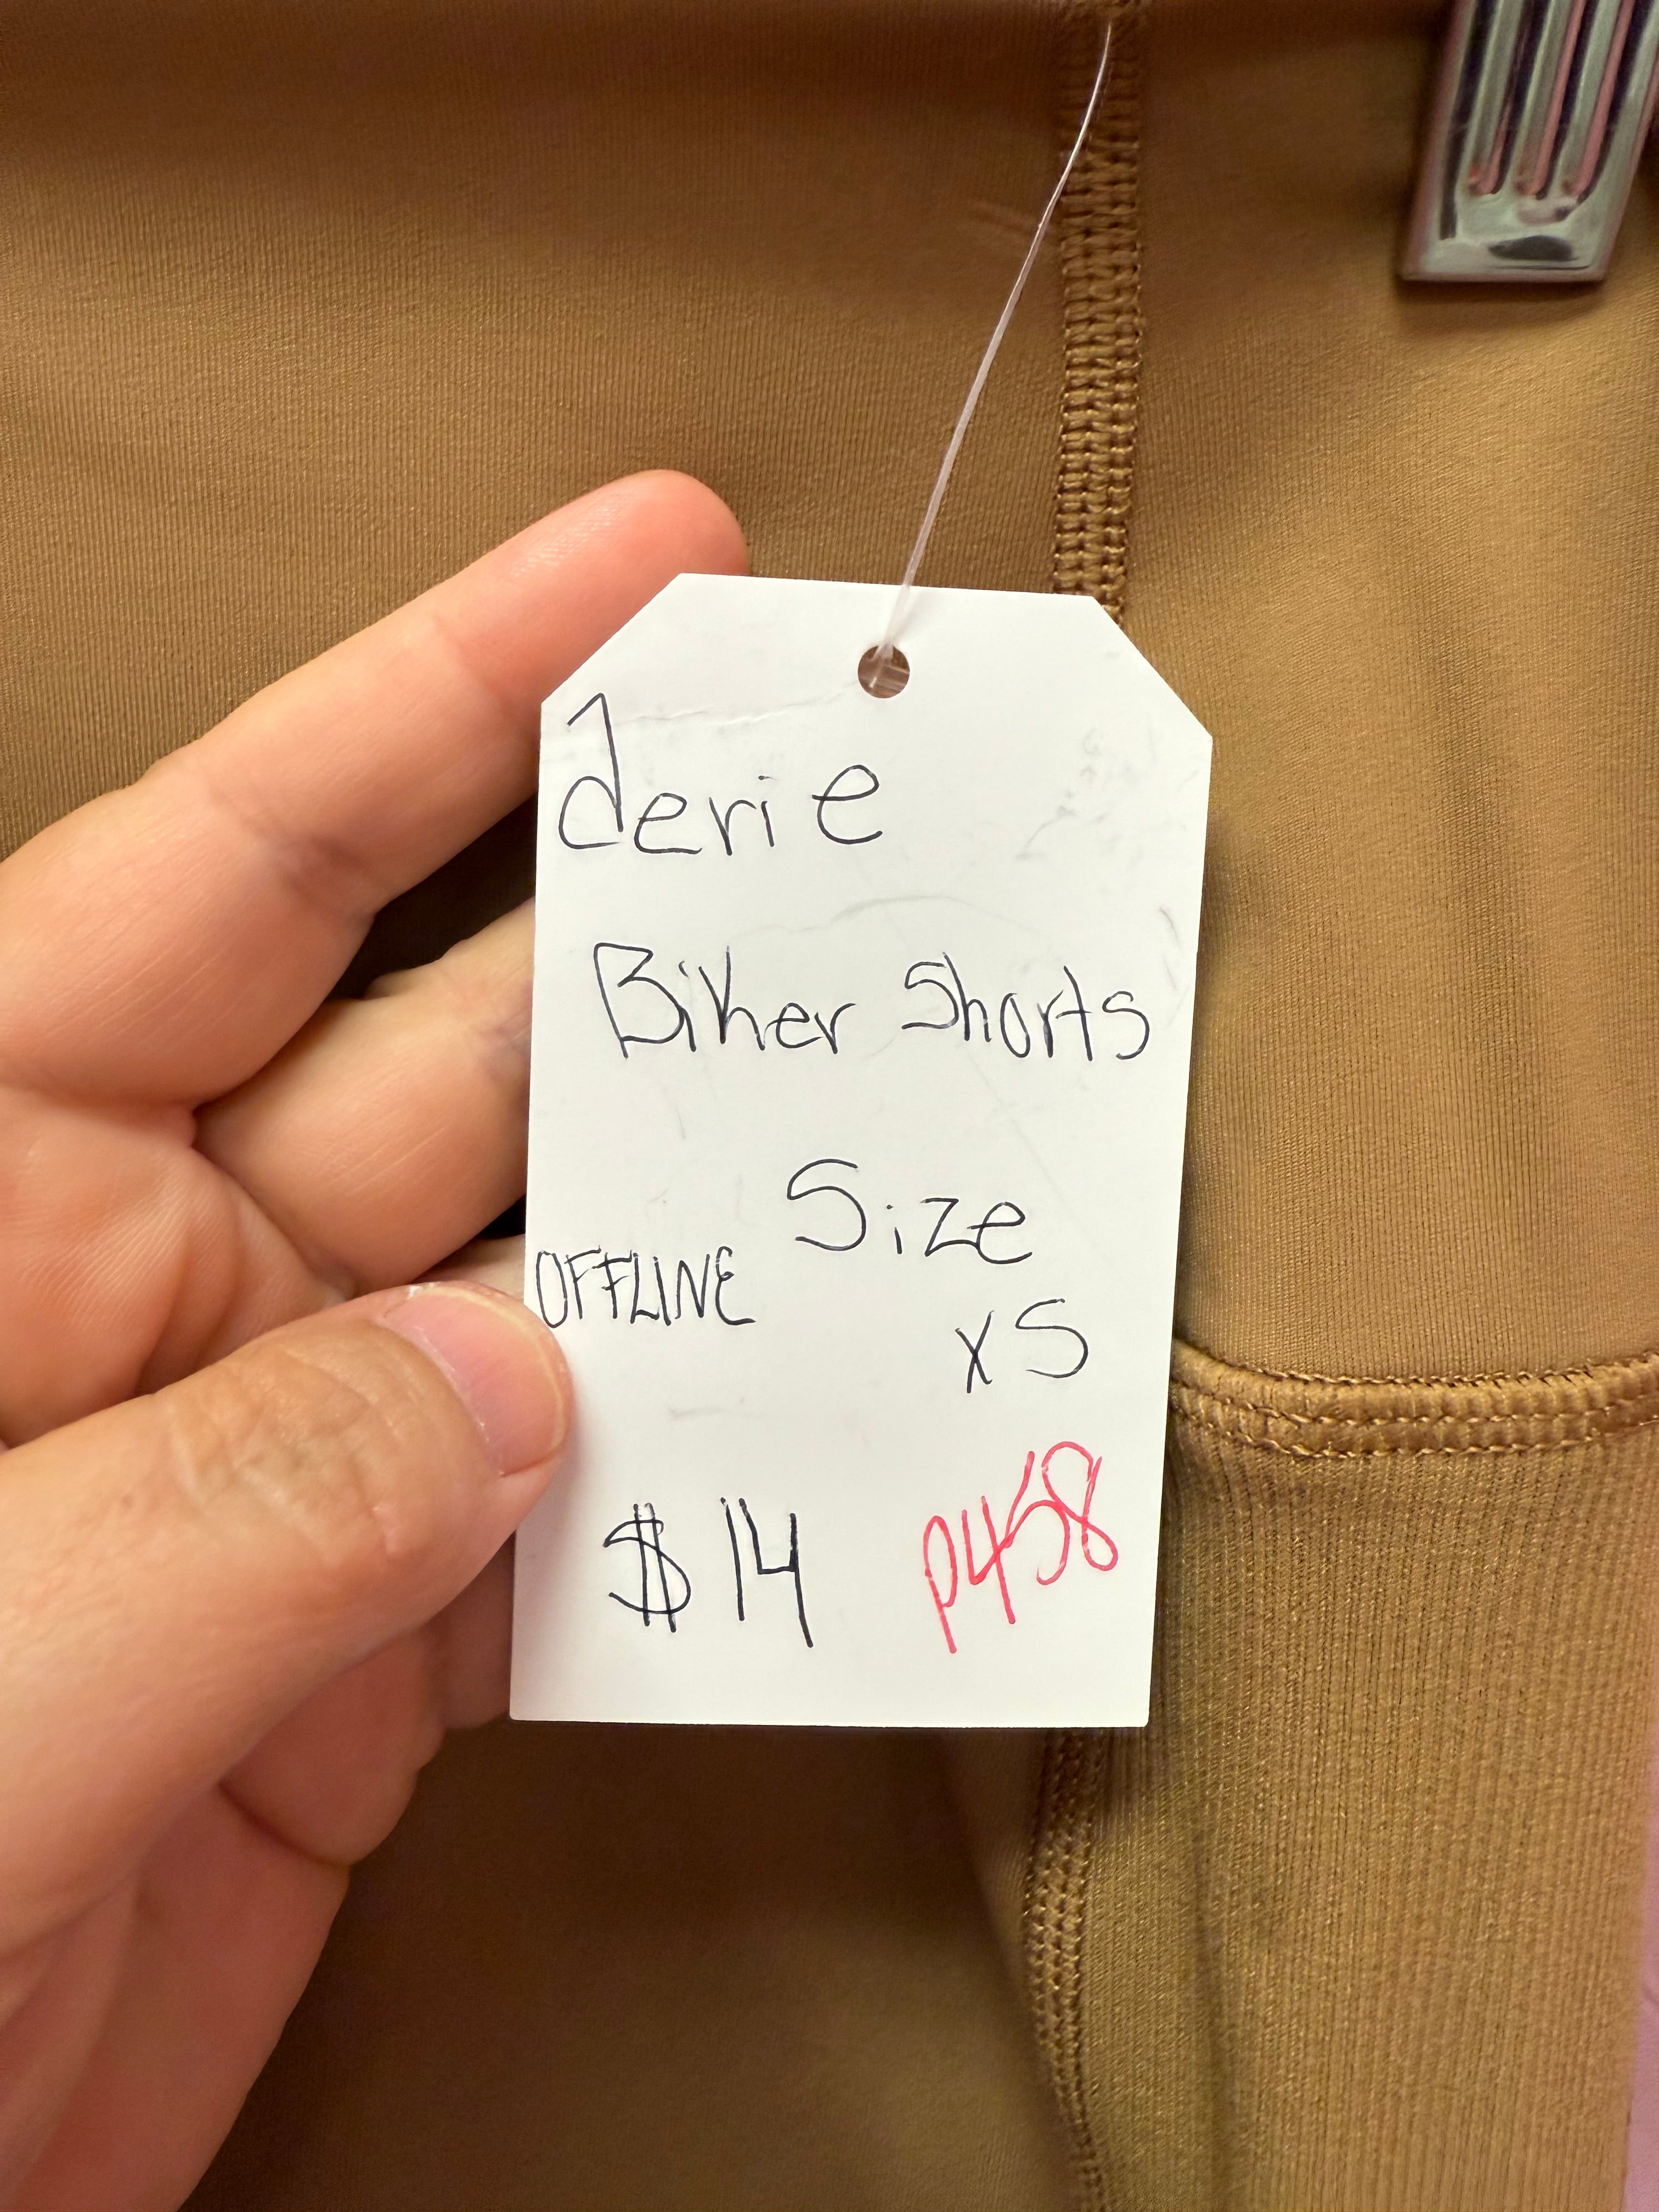 aerie
Biker Shorts
Size
OFFLINE
XS
$14 P458